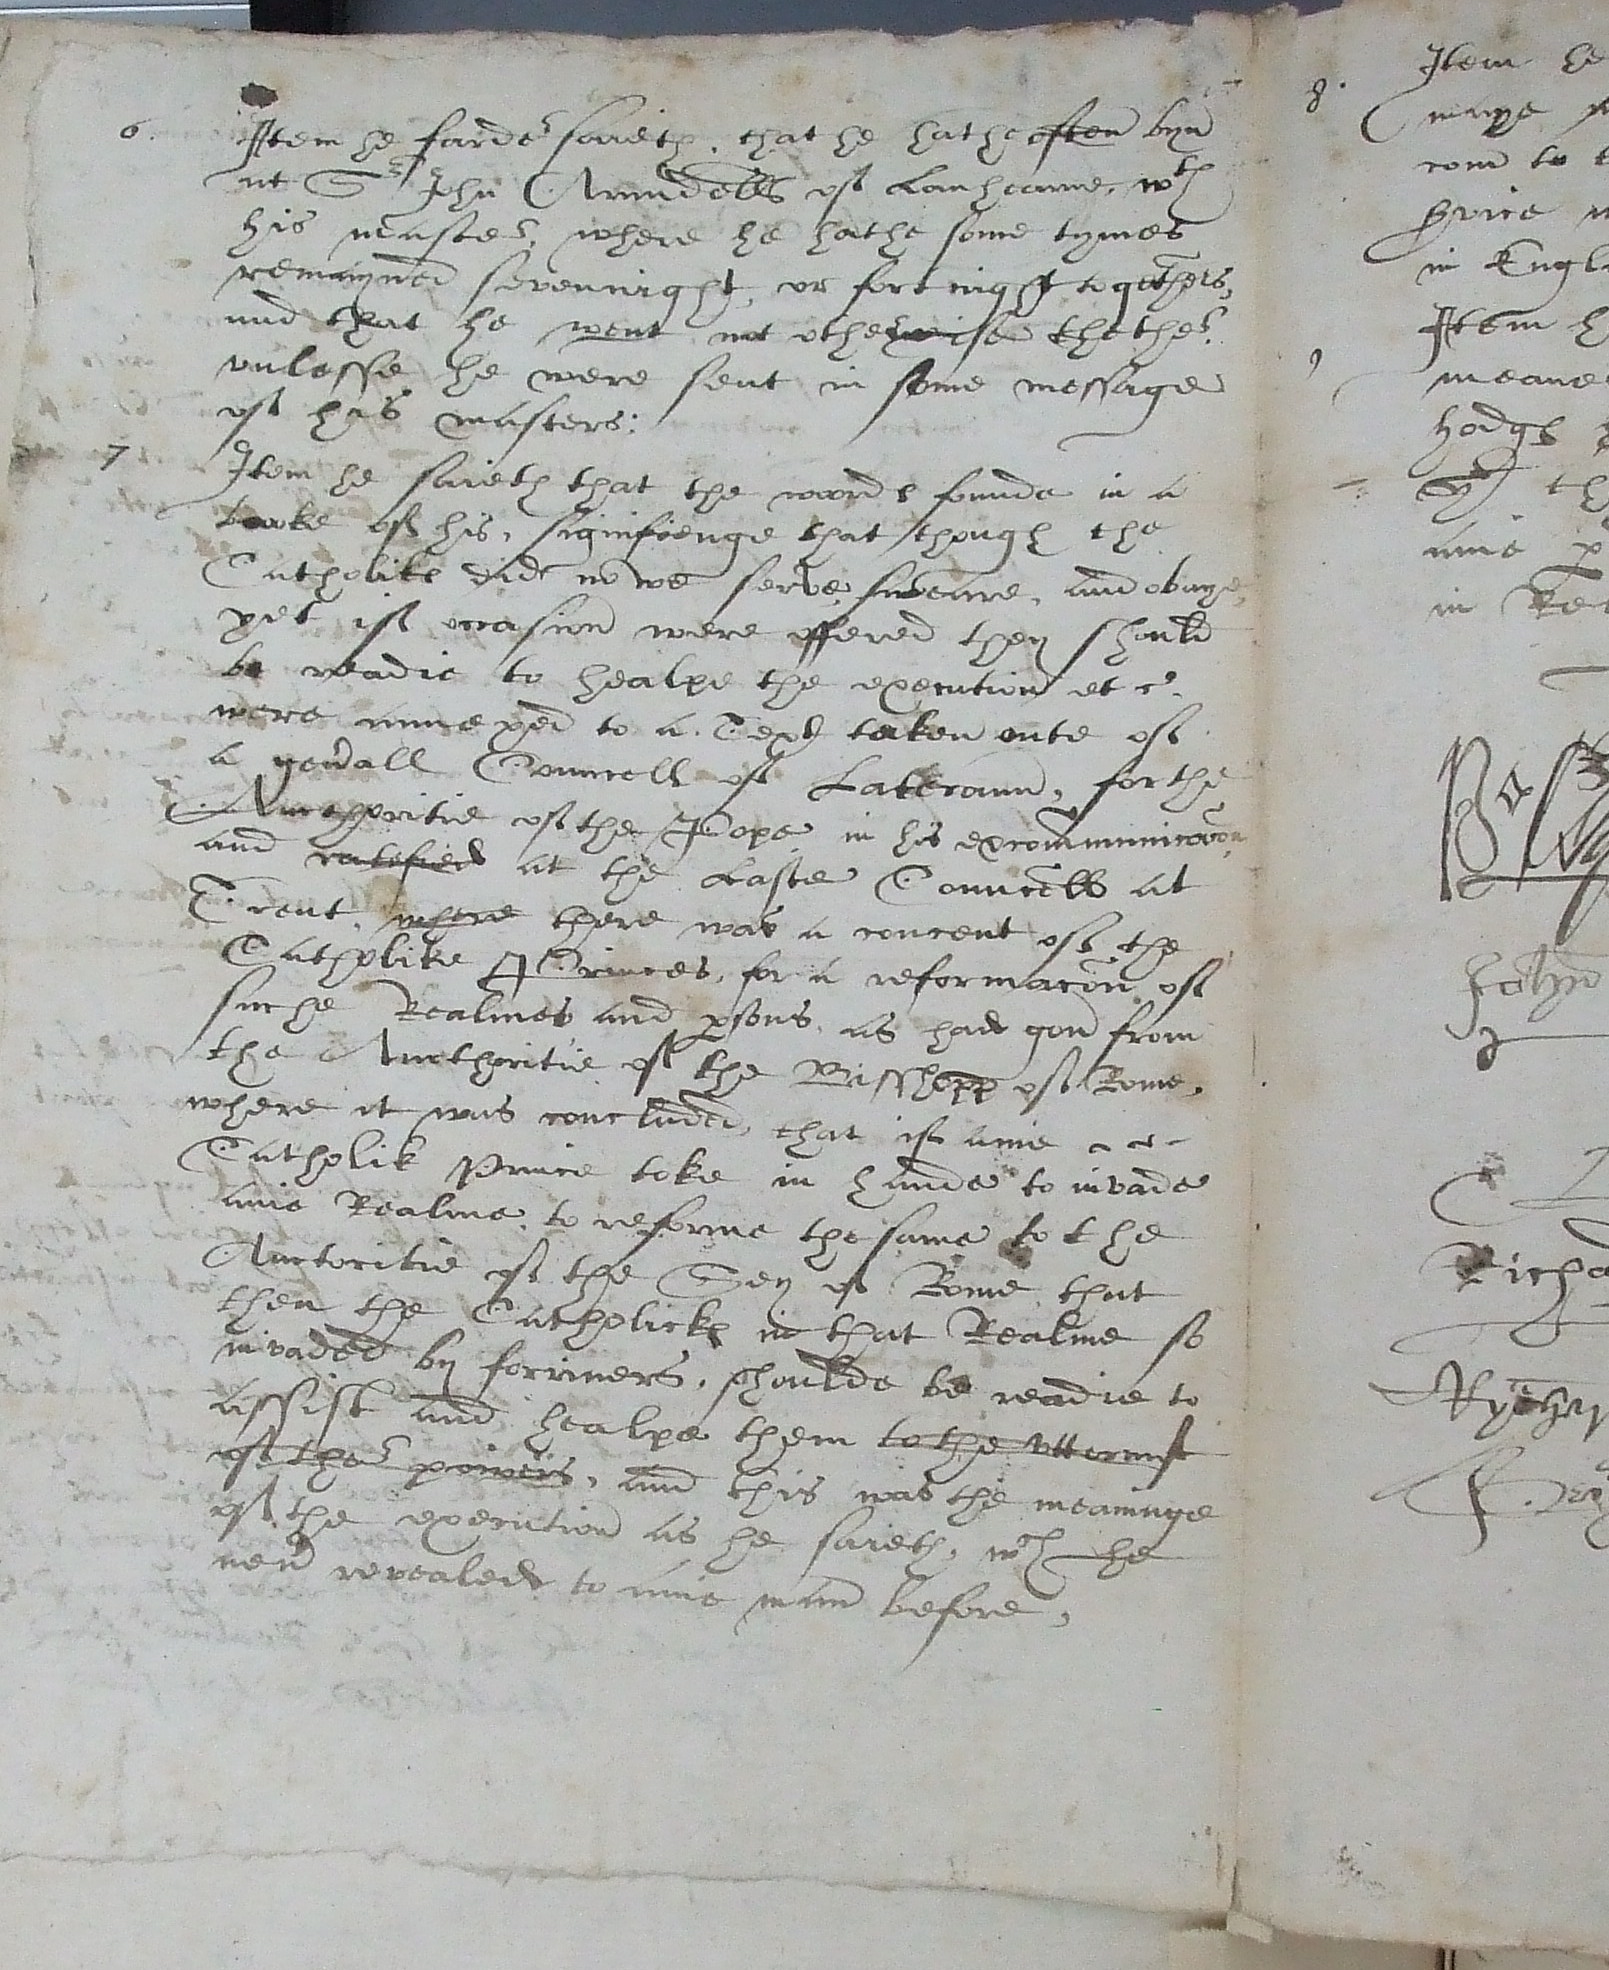 6. Item he farder saieth, that he hathe often byn
at Sr John Arundells of Lanhearne, wth
his master, where he hathe some tymes
remayned sevennight, or fortnight togethers,
and that he went not otherwise thether
unlesse he were sent in some message
of his masters:
7 Item he saieth that the words founde in a
booke of his, signifienge that though the
Catholiks did nowe serve, sweare, and obaye,
yet if occasion were offered they should
be readie to healpe the execution et c.
were annexed to a Text taken oute of
a genrall Councell of Laterann, for the
Aucthoritie of the Pope in his excommunicacon,
and ratefied at the Laste Councell at
Trent, where there was a concent of the
Catholike Princes, for a reformacon of
suche Realmes and psons, as had gon from
the Aucthoritie of the Bisshopp of Rome,
where it was concluded, that if anie
Catholik Prince toke in hande to invade
anie Realme, to reforme the same to the
Auctoritie of the Sey of Rome, that
then the Catholicks in that Realme so
invaded by forriners, shoulde be readie to
assist and healpe them to the uttermst
of ther powers, and this was the meaninge
of the execution as he saieth, wch he
nevr revealed to anie man before,
8. Item he
com to
in Engl
Item h
meane
hodgs
th
anie p
in
John
Richa